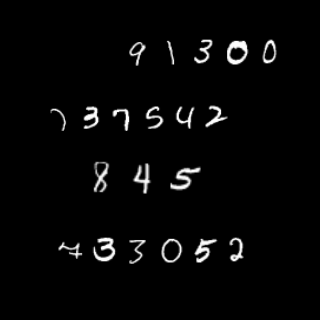 91300
737542
845
733052